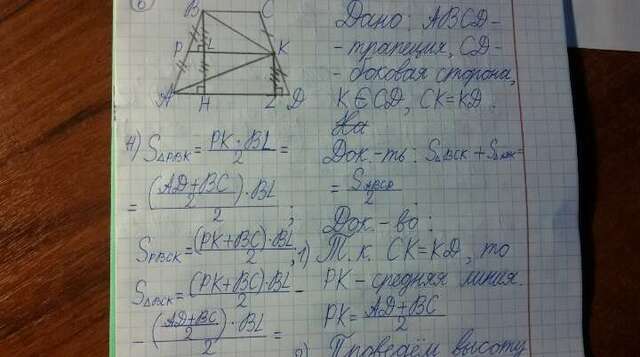 6)
B C
P L K
A H Z D
Дано: ABCD-
- трапеция, CD-
- боковая сторона,
K ∈ CD, CK = KD.
Док-ть: S△BCK + S△ADK =
= SABCD / 2
Док-во:
1) Т.к. CK = KD, то
PK - средняя линия.
PK = (AD + BC) / 2
2) Проведём высоту
4) S△PBK = (PK · BL) / 2 =
= ((AD + BC) / 2) · BL / 2 ;
SPBCK = (PK + BC) · BL / 2 ;
S△BCK = (PK + BC) · BL / 2 -
- ((AD + BC) / 2) · BL / 2 =